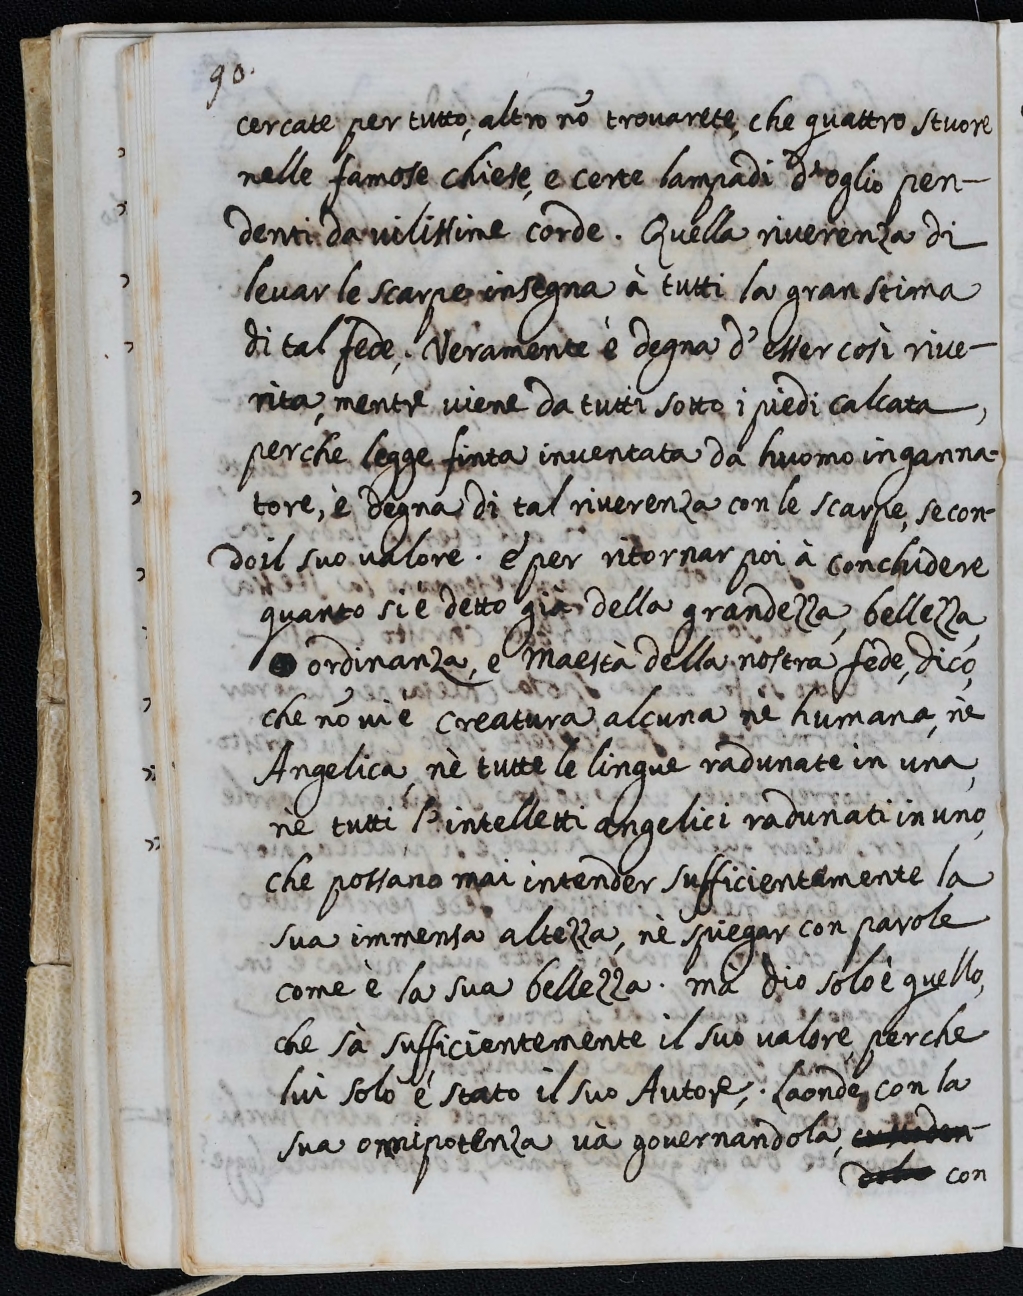 90.
cercate per tutto, altro nō trouarete, che quattro stuore
nelle famose chiese, e certe lampadi d'oglio pen-
denti da uilissime corde. Quella riuerenza di
leuar le scarpe insegna à tutti la gran stima
di tal fede. Veramente è degna d'esser così riue-
rita, mentre uiene da tutti sotto i piedi calcata,
perche legge finta inuentata da huomo inganna-
tore, è degna di tal riuerenza con le scarpe, secon-
do il suo ualore. e per ritornar poi à conchidere
quanto si è detto già della grandezza, bellezza,
ordinanza, e Maestà della nostra fede, dico,
che nō ui è creatura alcuna nè humana, nè
Angelica, nè tutte le lingue radunate in una,
nè tutti l'intelletti angelici radunati in uno,
che possano mai intender sufficientemente la
sua immensa altezza, nè spiegar con parole
come è la sua bellezza. mà dio solo è quello,
che sà sufficientemente il suo ualore, perche
lui solo è stato il suo Autore,. Laonde, con la
sua onnipotenza uà gouernandola,
con